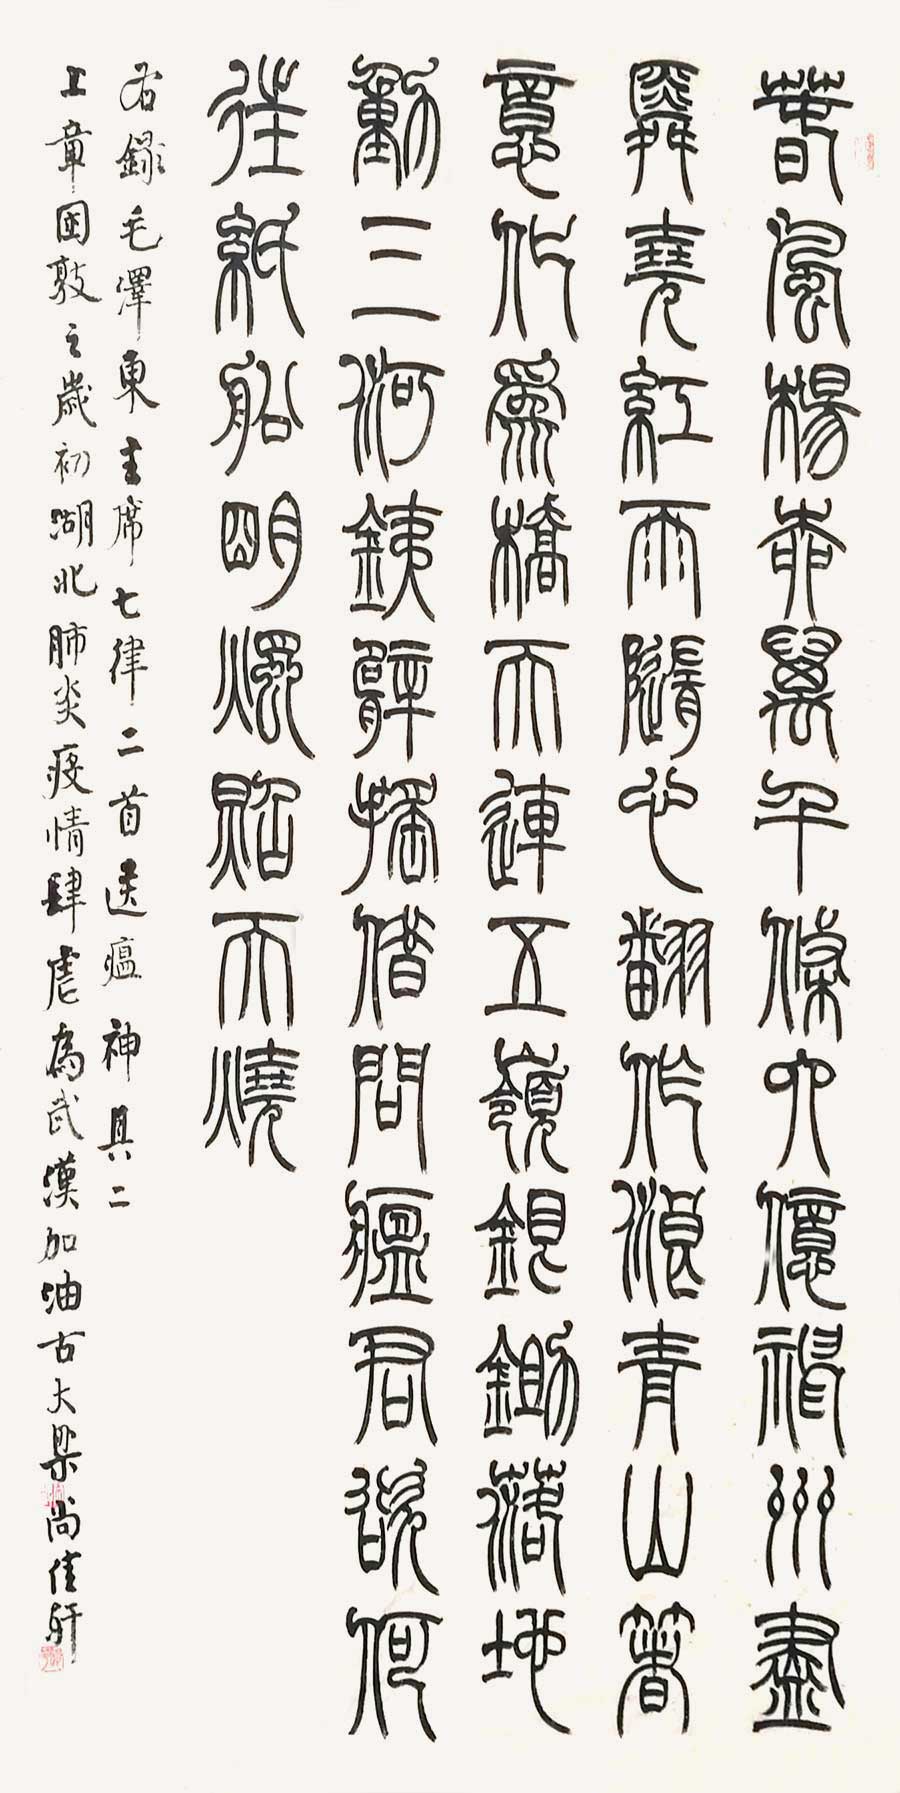 春風楊柳萬千條六億神州盡
舜堯紅雨隨心翻作浪青山著
意化爲橋天連五嶺銀鋤落地
動三河銕臂搖借問瘟君欲何
往紙船明燭照天燒
右錄毛澤東主席七律二首送瘟神其二
上章困敦之歲初湖北肺炎疫情肆虐為武漢加油古大梁尚佳軒